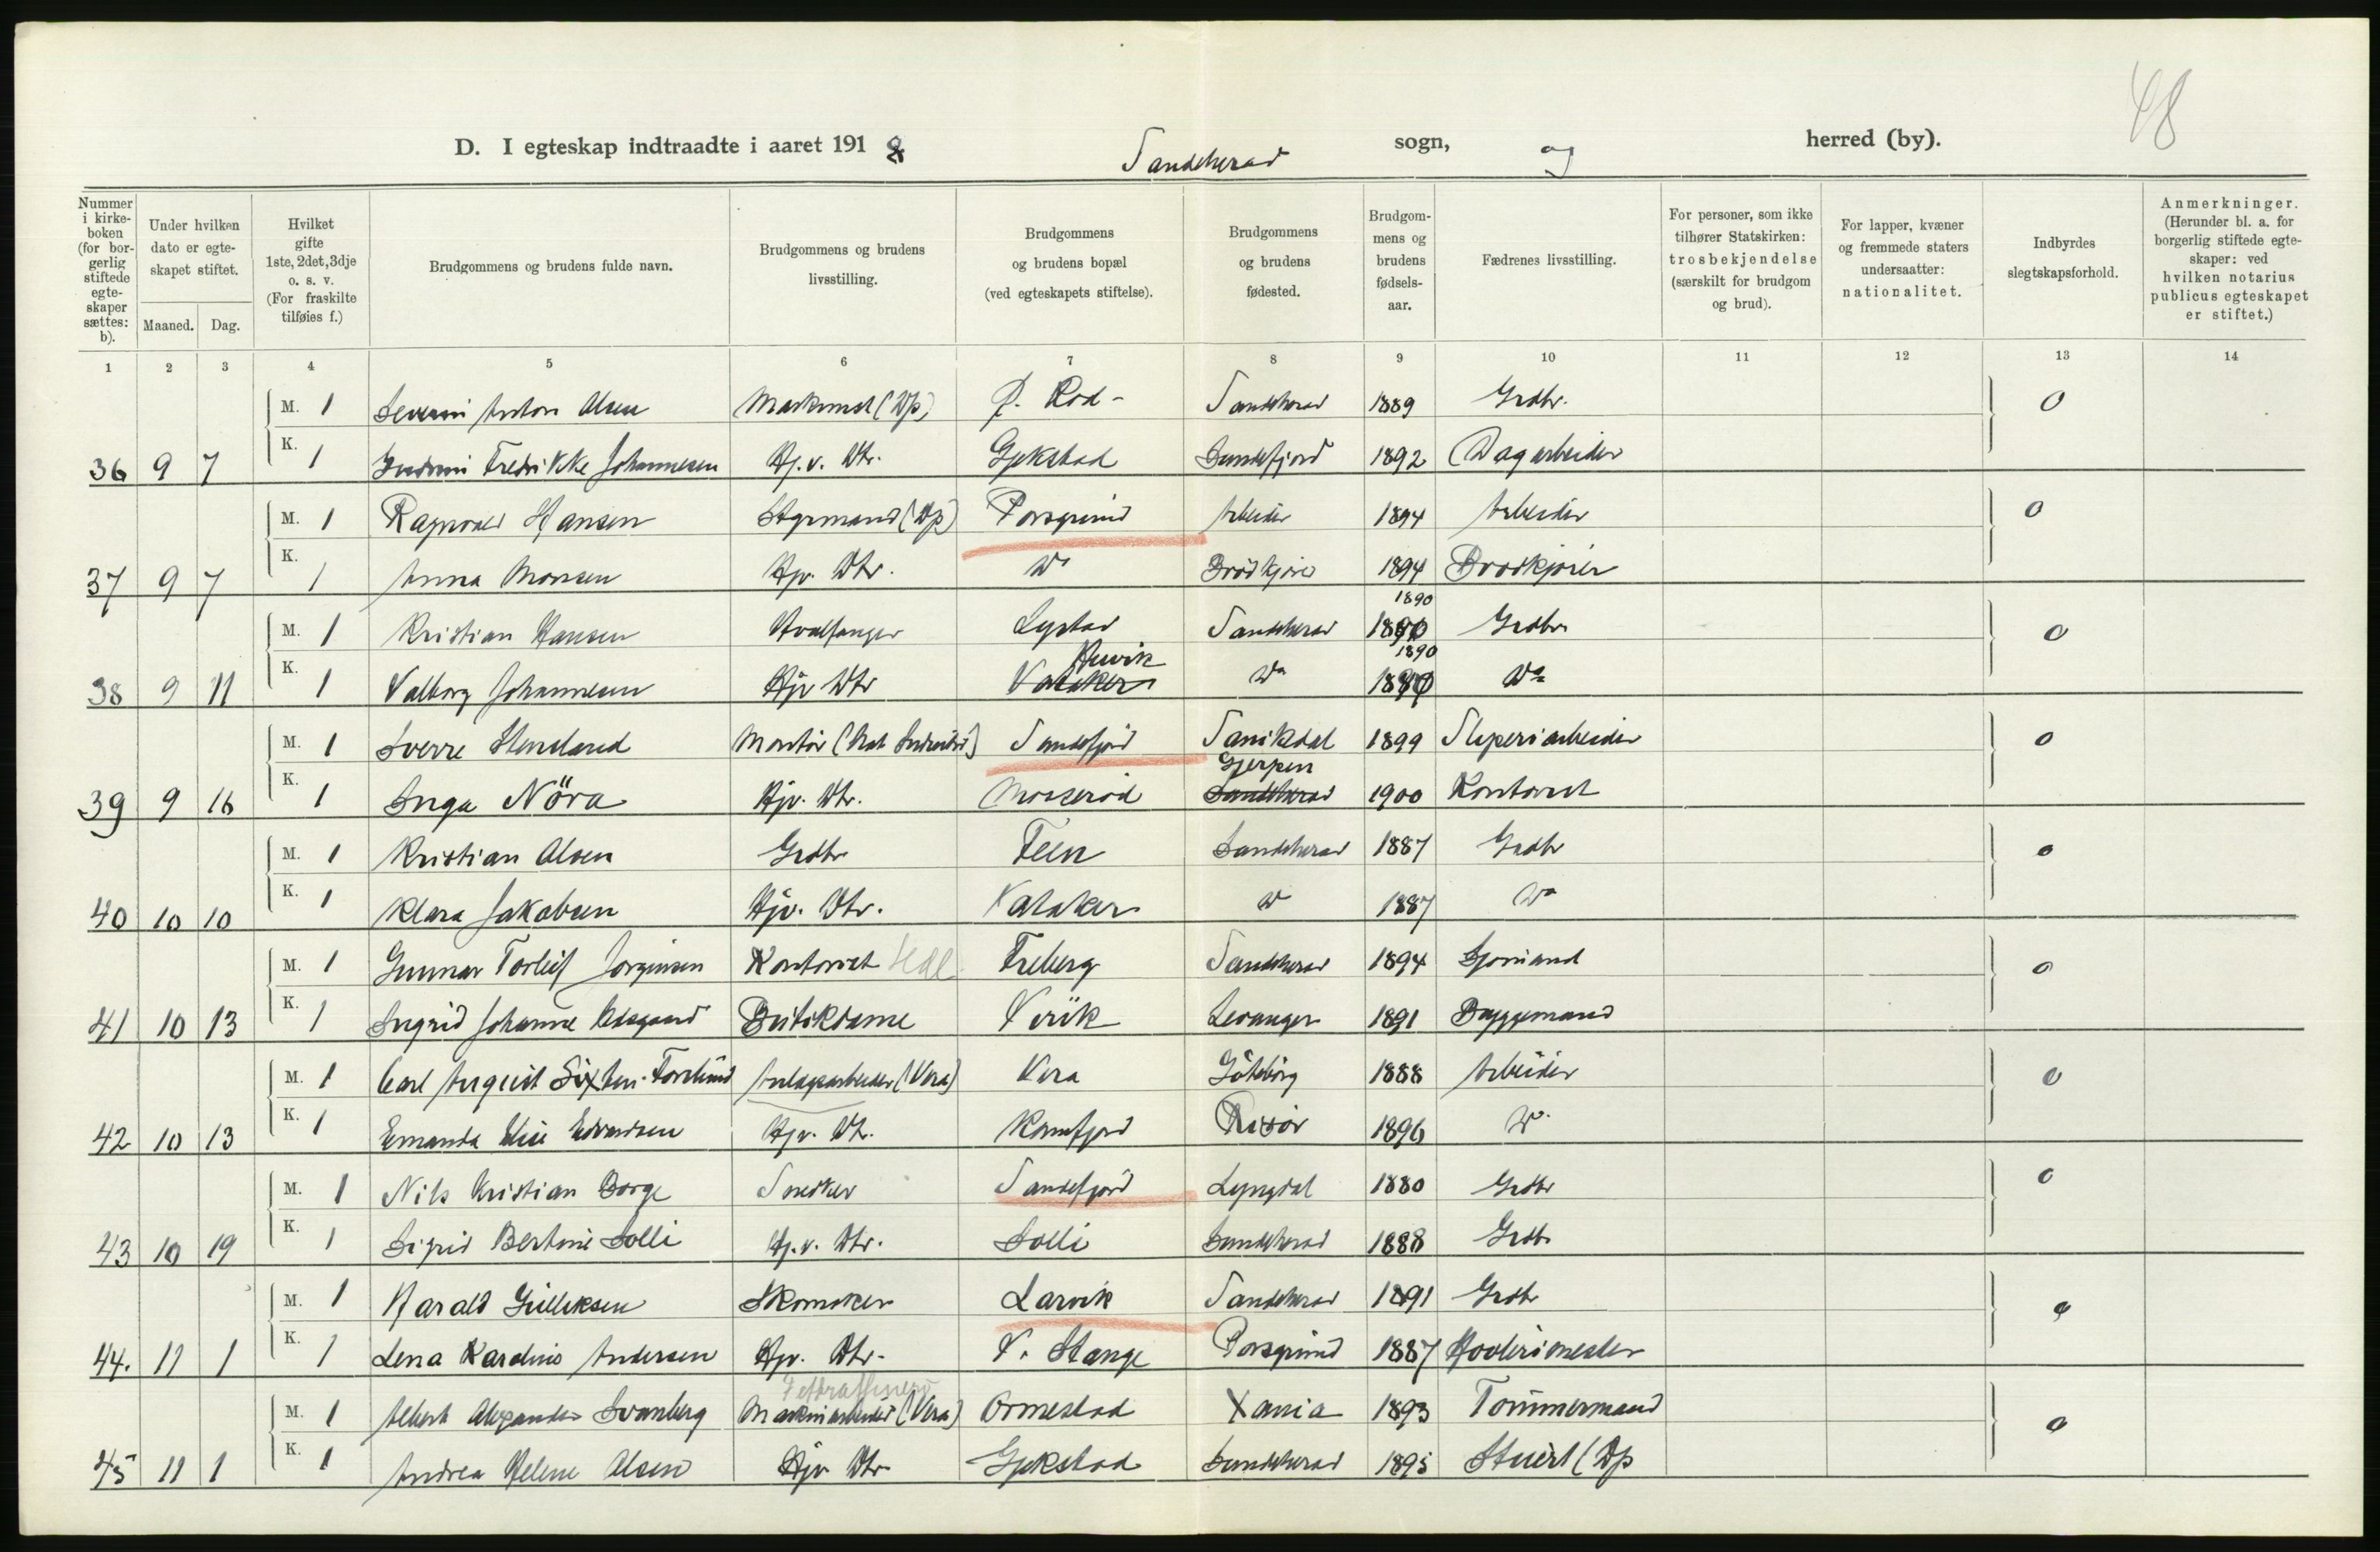 48
D. I egteskap indtraadte i aaret 1918 Sandeherad sogn, og herred (by).
Nummer i kirke-boken (for bor-gerlig stiftede egte-skaper sættes: b).
Under hvilken dato er egte-skapet stiftet.
Maaned. Dag.
Hvilket gifte 1ste, 2det, 3dje o. s. v. (For fraskilte tilføies f.)
Brudgommens og brudens fulde navn.
Brudgommens og brudens livsstilling.
Brudgommens og brudens bopæl (ved egteskapets stiftelse).
Brudgommens og brudens fødested.
Brudgom-mens og brudens fødsels-aar.
Fædrenes livsstilling.
For personer, som ikke tilhører Statskirken: trosbekjendelse (særskilt for brudgom og brud).
For lapper, kvæner og fremmede staters undersaatter: nationalitet.
Indbyrdes slegtskapsforhold.
Anmerkninger. (Herunder bl. a. for borgerlig stiftede egte-skaper: ved hvilken notarius publicus egteskapet er stiftet.)
1 2 3 4 5 6 7 8 9 10 11 12 13 14
M. 1 Anton Olsen Maskinist (Dp) Ø. Rød - Sandeherad 1889 Grdbr. 0
36 9 7 K. 1 Fredrikke Johannesen Hj. v. Dtr. Gjekstad Sandefjord 1892 Dagarbeider
M. 1 Ragnvald Hansen Styrmand (Dp) Porsgrund Arbeider 1894 Arbeider 0
37 9 7 K. 1 Anna Monsen Hjv. Dtr. Do Brødkjører 1894 Brødkjører
1890
M. 1 Kristian Hansen Hvalfanger Lystad Sandeherad 1890 Grdbr 0
Huvik 1890
38 9 11 K. 1 Valborg Johannesen Hjv Dtr Vataker Do 1890 Do
M. 1 Sverre Stensland Montør Sandefjord Sanikdal 1899 Sliperiarbeider 0
Gjerpen
39 9 16 K. 1 Inga Nöra Hjv. Dtr. Mosserød Sandeherad 1900 Kontorist
M. 1 Kristian Olsen Grdbr Feen Sandeherad 1887 Grdbr 0
40 10 10 K. 1 Klara Jakobsen Hjv. Dtr. Vataker Do 1887 Do
M. 1 Gunnar Torleif Jørginsen Kontorist Hdl Freberg Sandeherad 1894 Sjømand 0
41 10 13 K. 1 Ingrid Johanne Butikdame Virik Levanger 1891 Byggemand
M. 1 Carl Sixten Forslund Anlægsarbeider (Vera) Vera Göteborg 1888 Arbeider 0
42 10 13 K. 1 Emanda Elise Edvardsen Hjv. Dt. Kamfjord Risør 1896 Do
M. 1 Nils Kristian Borge Snedker Sandefjord Lyngdal 1880 Grdbr 0
43 10 19 K. 1 Sigrid Bertine Solli Hj. v. Dtr. Solli Sandeherad 1888 Grdb
M. 1 Harald Gulliksen Skomaker Larvik Sandeherad 1891 Grdbr 0
44. 11 1 K. 1 Lena Karoline Andersen Hjv. Dtr. V. Stange Porsgrund 1887 Høvlerimester
Fettraffineri
M. 1 Albert Alexander Svanberg Maskinarbeider (Vera) Ormestad Xania 1893 Tømmermand 0
45 11 1 K. 1 Andrea Helene Olsen Hjv Dtr Gjekstad Sandeherad 1895 Stuert (Dp